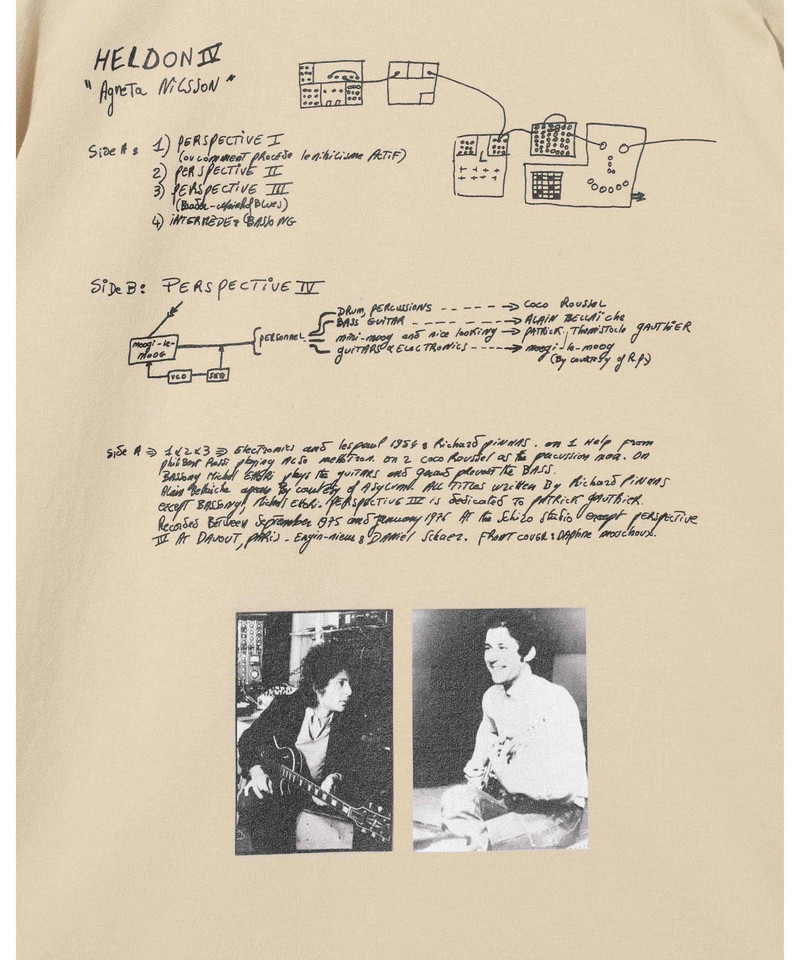 HELDON IV
"Agneta NiLSSON"
Side A: 1) PERSPECTIVE I
(ou comment procede le nihilisme Actif)
2) PERSPECTIVE II
3) PERSPECTIVE III
(Baader-Meinhof Blues)
4) iNTERMEDE: BASSONG
SiDe B: PERSPECTIVE IV
PERSONNEL
DRUM, PERCUSSIONS → COCO ROUSSEL
BASS GUITAR → ALAIN BELLAÏche
mini-moog and nice looking → PATRICK, Themistocle GAUTHIER
guiTARS & ELECTRONiCS → moogi-le-moog
(By courtesy of R.P.)
moogi-le-
mooG
VCO
SEQ
side A ⇒ 1&2&3 ⇒ Electronics and lespaul 1954: Richard piNHAS. on 1 Help from
philibert Rossi playing ALSO mellotron. on 2 coco Roussel as the percussion man. ON
BASSONG Michel EttORi plays the guiTARS and the BASS.
Alain Bellaiche By courtesy of Asylum. ALL TiTles wRiTTen by Richard PiNHAS
except BASSONG, Michel EttORi. PERSPECTIVE IV is dedicated To pATRICK GAUTHIER.
Recorded Between September 1975 and January 1976 AT the Schizo studio except PERSPECTIVE
IV AT DAVOUT, pARiS - Engin-nieur: DANiel FRONT COVER: DAphne